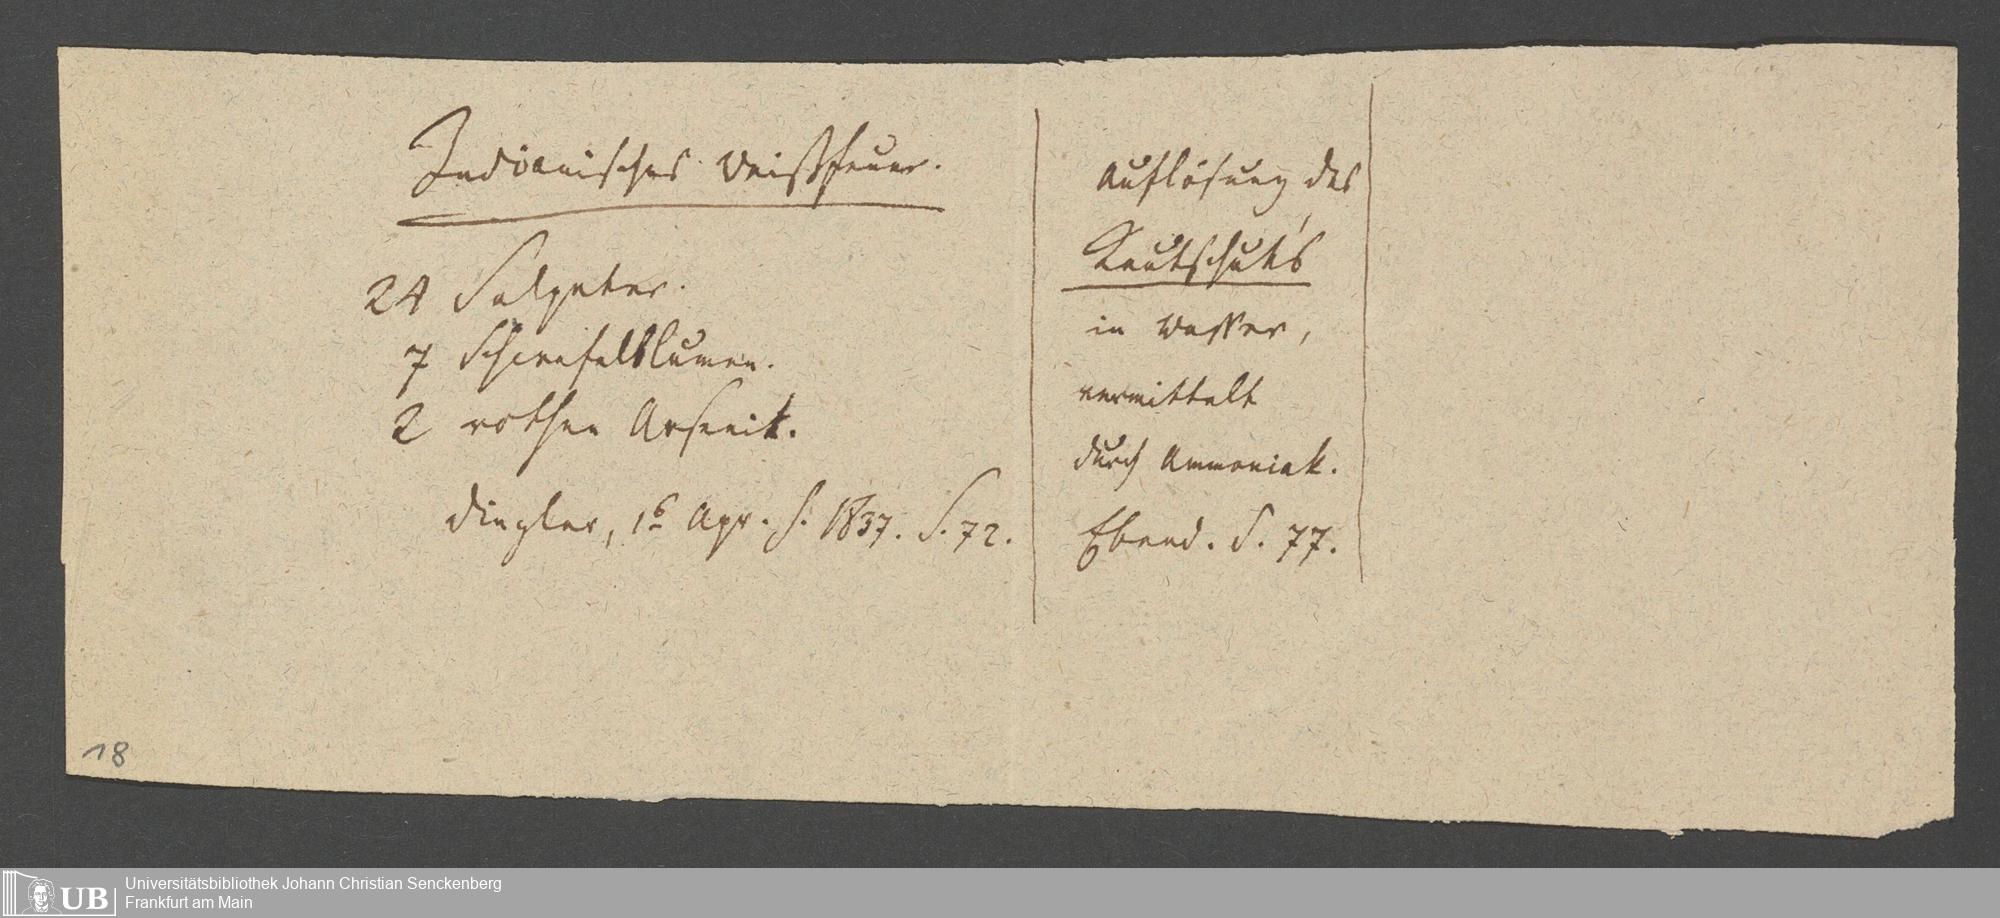 Indianisches Weißfeuer.
24 Salpeter.
7 Schwefelblumen.
2 rothen Arsenik.
Dingler, 1s Apr. H. 1837. S. 72.
Auflösung des
Kautschuk's
in Wasser,
vermittelt
durch Ammoniak.
Ebend. S. 77.
18
UB
Universitätsbibliothek Johann Christian Senckenberg
Frankfurt am Main